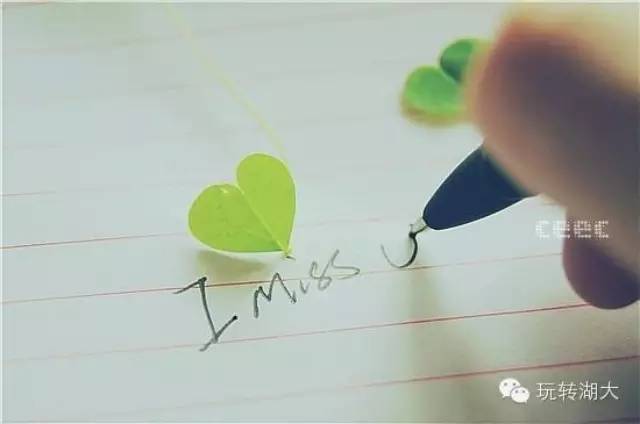 I miss u
ceec
玩转湖大